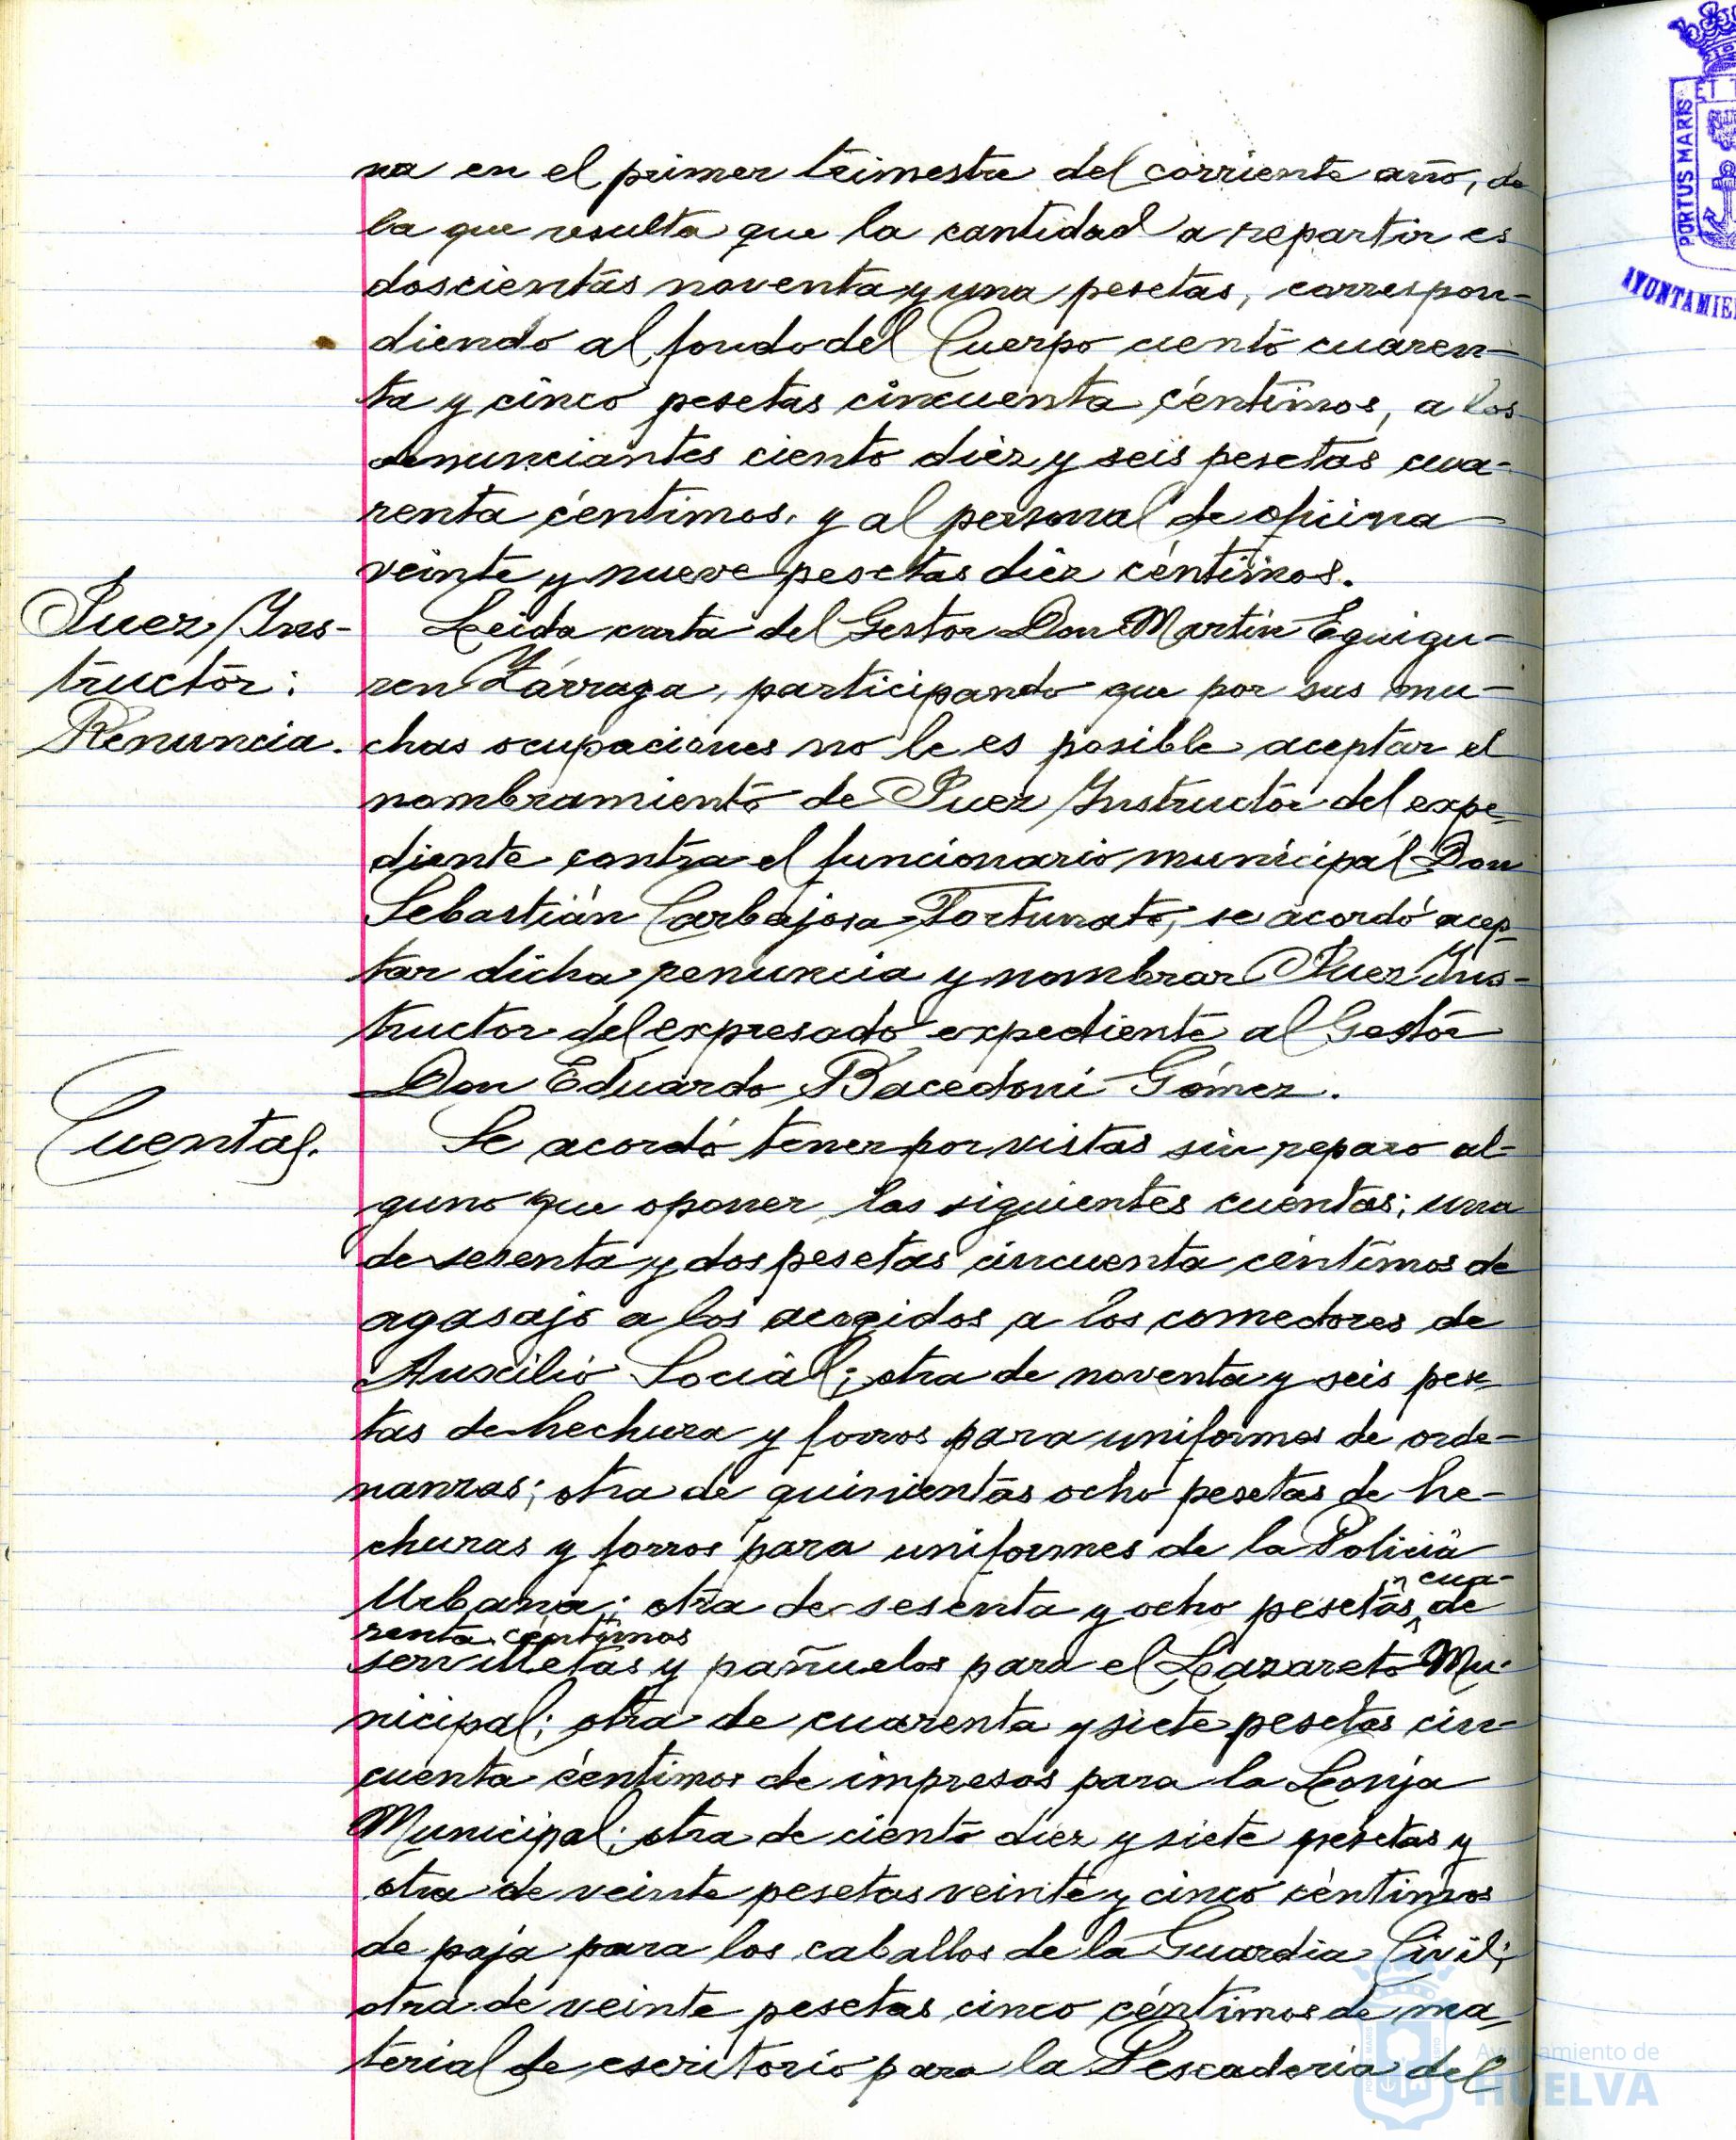 na en el primer trimestre del corriente año, de
la que resulta que la cantidad a repartir es
doscientas noventa y una pesetas, correspon-
diendo al fondo del Cuerpo ciento cuaren-
ta y cinco pesetas cincuenta céntimos, a los
denunciantes ciento diez y seis pesetas cua-
renta céntimos, y al personal de oficina
veinte y nueve pesetas diez céntimos.
Juez Ins-
tructor:
Renuncia.
Leida carta del Gestor Don Martín Eguigu-
ren Zárraga, participando que por sus mu-
chas ocupaciones no le es posible aceptar el
nombramiento de Juez Instructor del expe-
diente contra el funcionario municipal Don
Sebastián Carbajosa Fortunato, se acordó acep-
tar dicha renuncia y nombrar Juez Ins-
tructor del expresado expediente al Gestor
Don Eduardo Bacedoni Gómez.
Cuentas.
Se acordó tener por vistas sin reparo al-
guno que oponer, las siguientes cuentas; una
de sesenta y dos pesetas cincuenta céntimos de
agasajo a los acogidos a los comedores de
Auxilio Social; otra de noventa y seis pese-
tas de hechura y forros para uniformes de orde-
nanzas; otra de quinientas ocho pesetas de he-
churas y forros para uniformes de la Policía
cua-
Urbana; otra de sesenta y ocho pesetas de
renta centimos
servilletas y pañuelos para el Lazareto Mu-
nicipal; otra de cuarenta y siete pesetas cin-
cuenta céntimos de impresos para la Lonja
Municipal; otra de ciento diez y siete pesetas y
otra de veinte pesetas veinte y cinco céntimos
de paja para los caballos de la Guardia Civil;
otra de veinte pesetas cinco céntimos de ma-
terial de escritorio para la Pescadería del
PORTUS MARIS
AYUNTAMIE
Ayuntamiento de
HUELVA